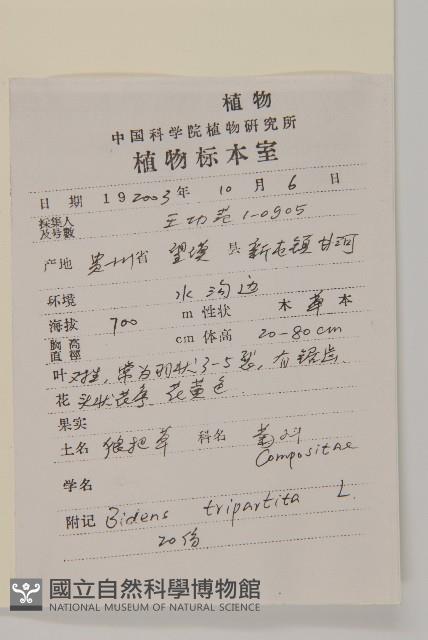 植物
中国科学院植物研究所
植物标本室
日期 19 2003 年 10 月 6 日
採集人及号數 王功芳 1-0905
产地 贵州省 望谟 县 新屯镇甘河
环境 水沟边
海拔 700 m 性状 木 草 本
胸高直徑 cm 体高 20-80cm
叶 对生, 常为羽状 3-5 裂, 有锯齿
花 头状花序 花黄色
果实
土名 狼把草 科名 菊科
Compositae
学名
附记 Bidens tripartita L.
20份
國立自然科學博物館
NATIONAL MUSEUM OF NATURAL SCIENCE